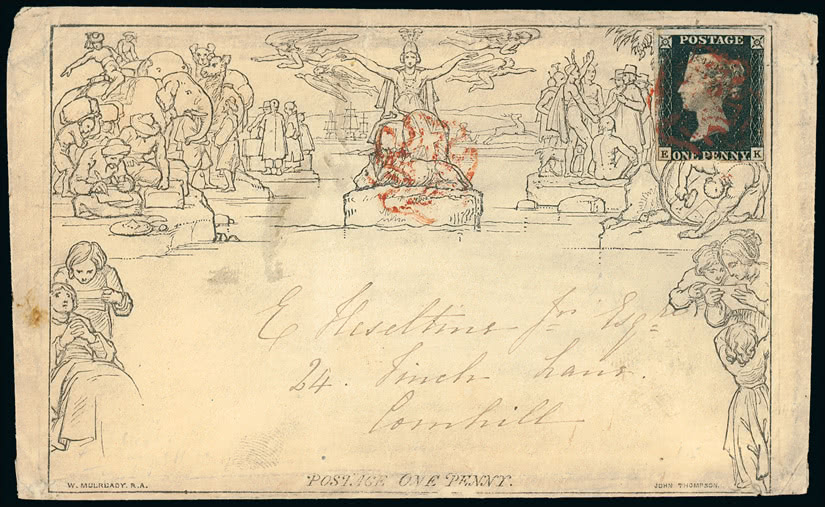 POSTAGE
E ONE PENNY K
E Heseltine Jnr Esqr
24. Finch Lane.
Cornhill
POSTAGE ONE PENNY.
W. MULREADY. R.A.
JOHN THOMPSON.